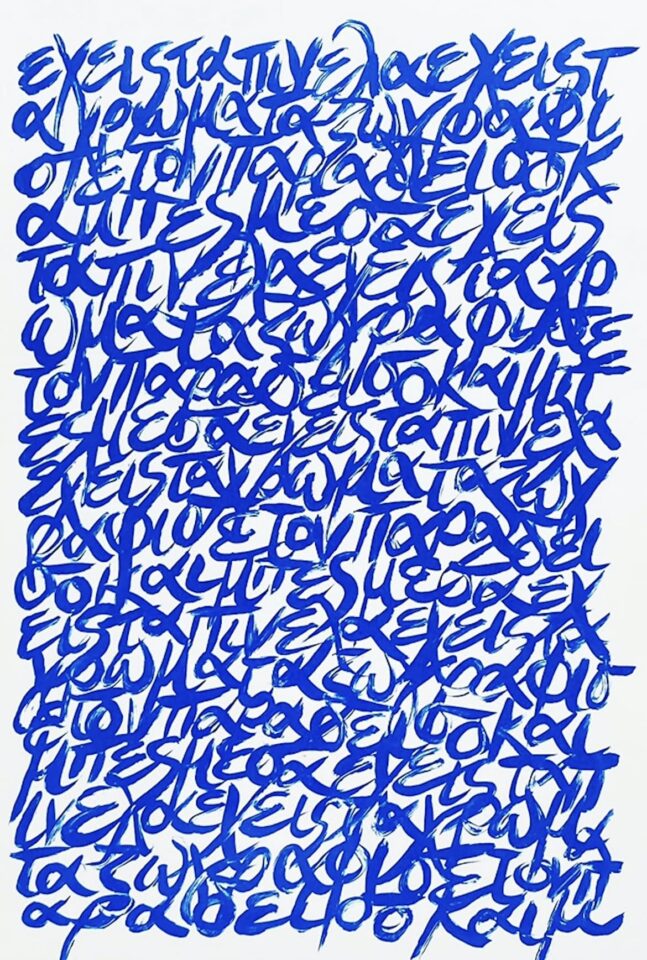 εχειςταπινελαεχειςτ
αχρωματαζωγραφι
σετονπαραδεισοκ
αιμπεςμεσαεχεις
ταπινελαεχειςταχρ
ωματαζωγραφισε
τονπαραδεισοκαιμπ
εςμεσαεχειςταπινελα
εχειςταχρωματαζωγ
ραφισετονπαραδει
σοκαιμπεςμεσαεχ
ειςταπινελαεχειςτα
χρωματαζωγραφισ
ετονπαραδεισοκαι
μπεςμεσαεχειςταπ
ινελαεχειςταχρωμα
ταζωγραφισετονπ
αραδεισοκαιμ